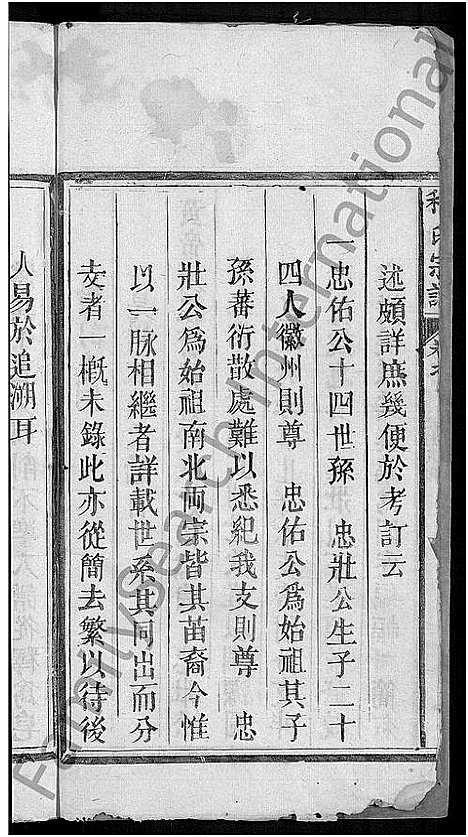 程氏宗譜
述頗詳庶幾便於考訂云
一忠佑公十四世孫 忠壯公生子二十
四人徽州則尊 忠佑公為始祖其子
孫蕃衍散處難以悉紀我支則尊 忠
壯公為始祖南北兩宗皆其苗裔今惟
以一脉相繼者詳載世系其同出而分
支者一槪未錄此亦從簡去繁以待後
人易於追溯耳
FamilySearch International